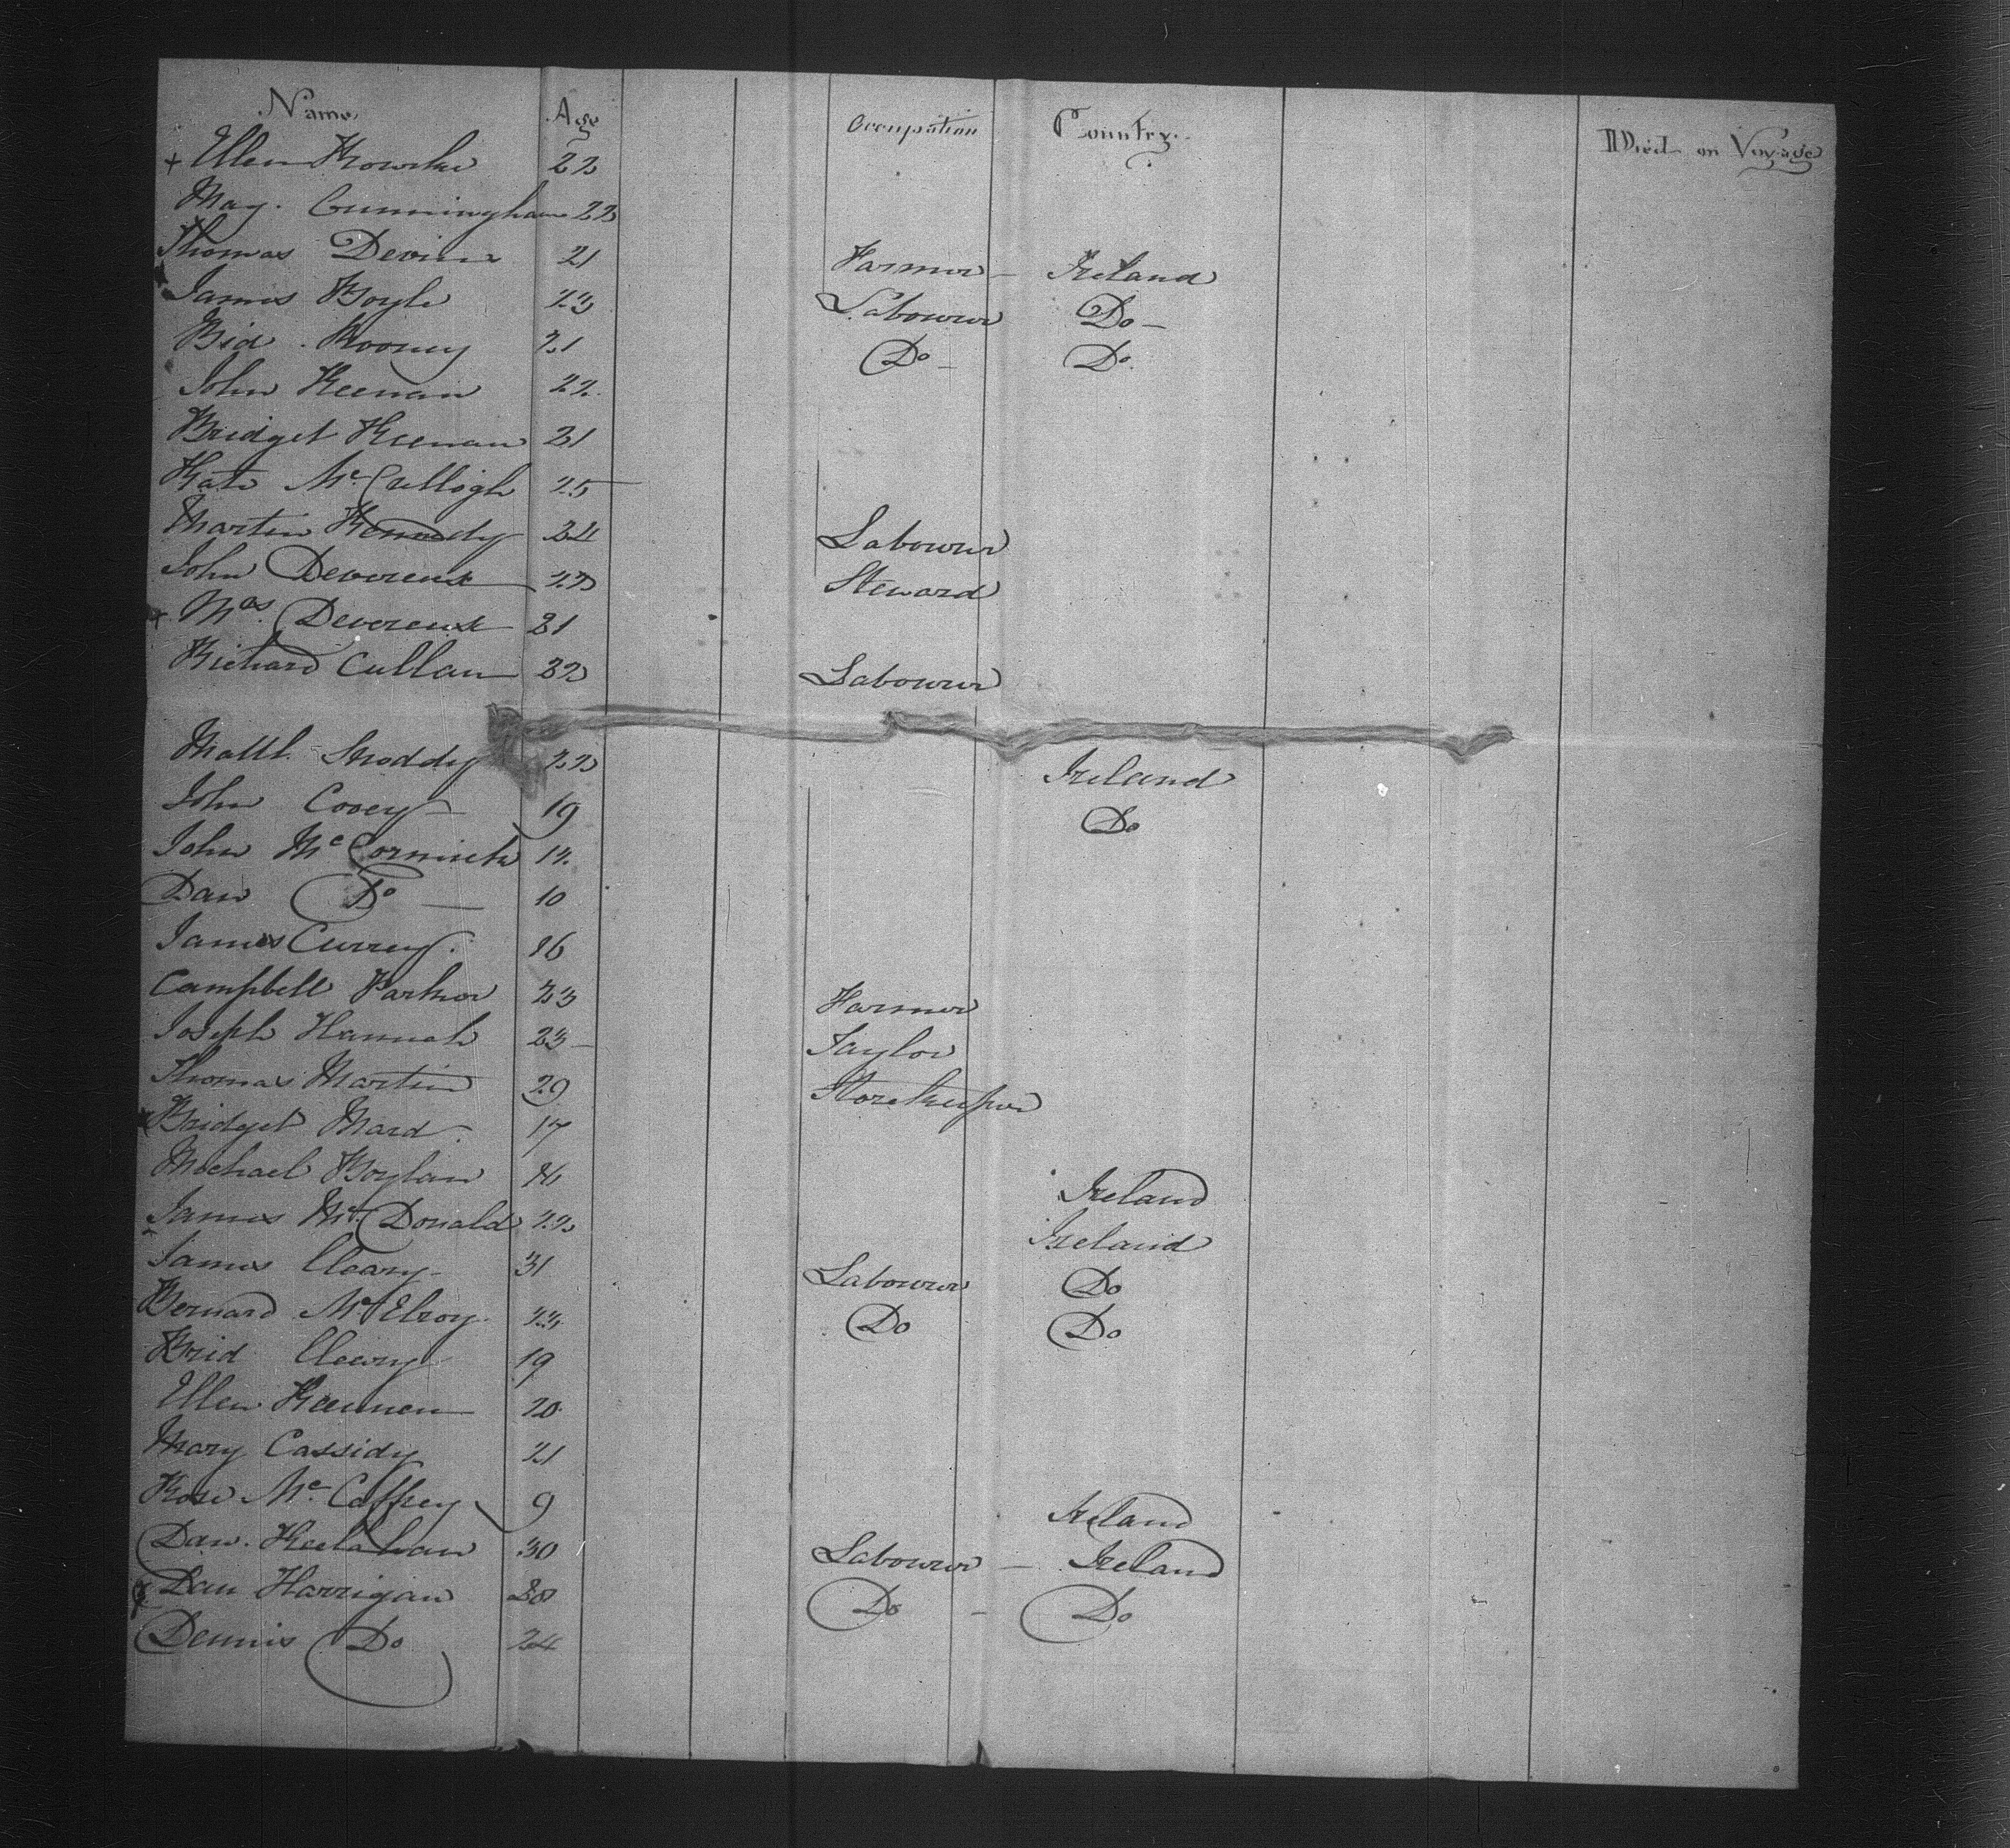 Name Age Occupation Country Died on Voyage
+ Ellen 22
May. Cunningham 22
Thomas Devin 21 Farmer - Ireland
James Boyle 23 Labourer Do -
Bid. Rooney 21 Do - Do
John Keenan 22
Bridget Keenan 21
Kate Mc Cullogh 25
Martin Kennedy 24 Labourer
John Devereux 22 Steward
+ Mrs. Devereux 21
Richard Cullan 22 Labourer
Matt. 22 Ireland
John Covey 19 Do
John Mc Cormick
Dan Do 10
James Currey 16
Campbell Parker 23 Farmer
Joseph Hannah 23 Taylor
Thomas Martin 29 Storekeeper
Bridget Ward 17
Michael Boylan Ireland
James Mc Donald 22 Ireland
James Cleary 31 Labourer Do
Bernard Mc Elroy 23 Do Do
Brid Cleary 19
Ellen 20
Mary Cassidy 21
Rose Mc Caffrey 9 Ireland
Dan. Keelahan 30 Labourer - Ireland
Dan Harrigan Do - Do
Dennis Do 24